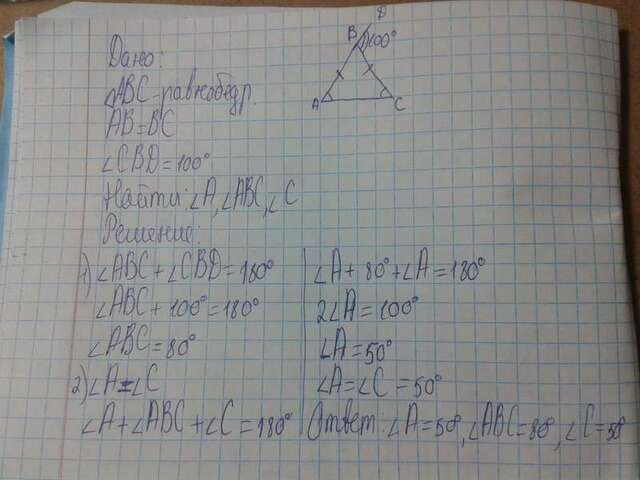 Дано:
△ABC-равнобедр.
AB=BC
∠CBD=100°
Найти: ∠A, ∠ABC, ∠C
Решение:
1) ∠ABC+∠CBD=180°
∠ABC+100°=180°
∠ABC=80°
2) ∠A=∠C
∠A+∠ABC+∠C=180°
∠A+80°+∠A=180°
2∠A=100°
∠A=50°
∠A=∠C=50°
Ответ: ∠A=50°, ∠ABC=80°, ∠C=50°
D
B 100°
A C